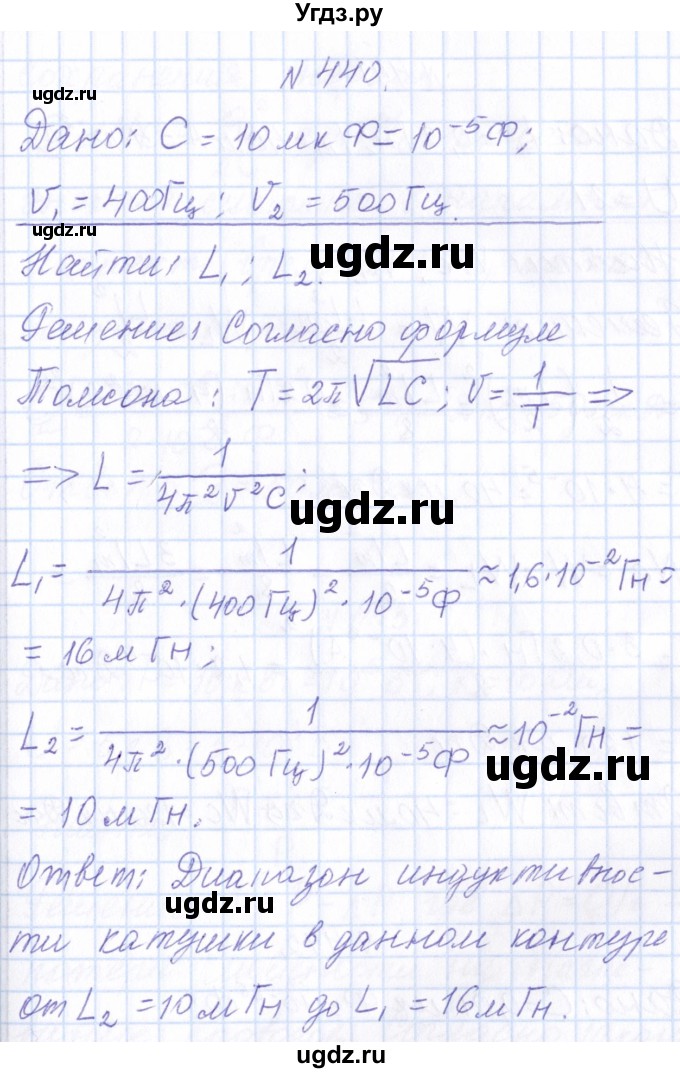 Угдз.ру
N 440.
ugdz.ru
Дано: C = 10 мк Ф = 10⁻⁵ Ф;
ν₁ = 400 Гц; ν₂ = 500 Гц.
ugdz.ru
Найти: L₁; L₂.
ugdz.ru
Решение: Согласно формуле
Томсона: T = 2π√LC; ν = 1/T =>
=> L = 1/4π²ν²C;
ugdz.ru
L₁ = 1/4π²·(400 Гц)²·10⁻⁵Ф ≈ 1,6·10⁻² Гн =
= 16 м Гн;
ugdz.ru
L₂ = 1/4π²·(500 Гц)²·10⁻⁵Ф ≈ 10⁻² Гн =
ugdz.ru
= 10 м Гн.
Ответ: Диапазон индуктивнос-
ugdz.ru
ти катушки в данном контуре
от L₂ = 10 м Гн до L₁ = 16 м Гн.
ugdz.ru